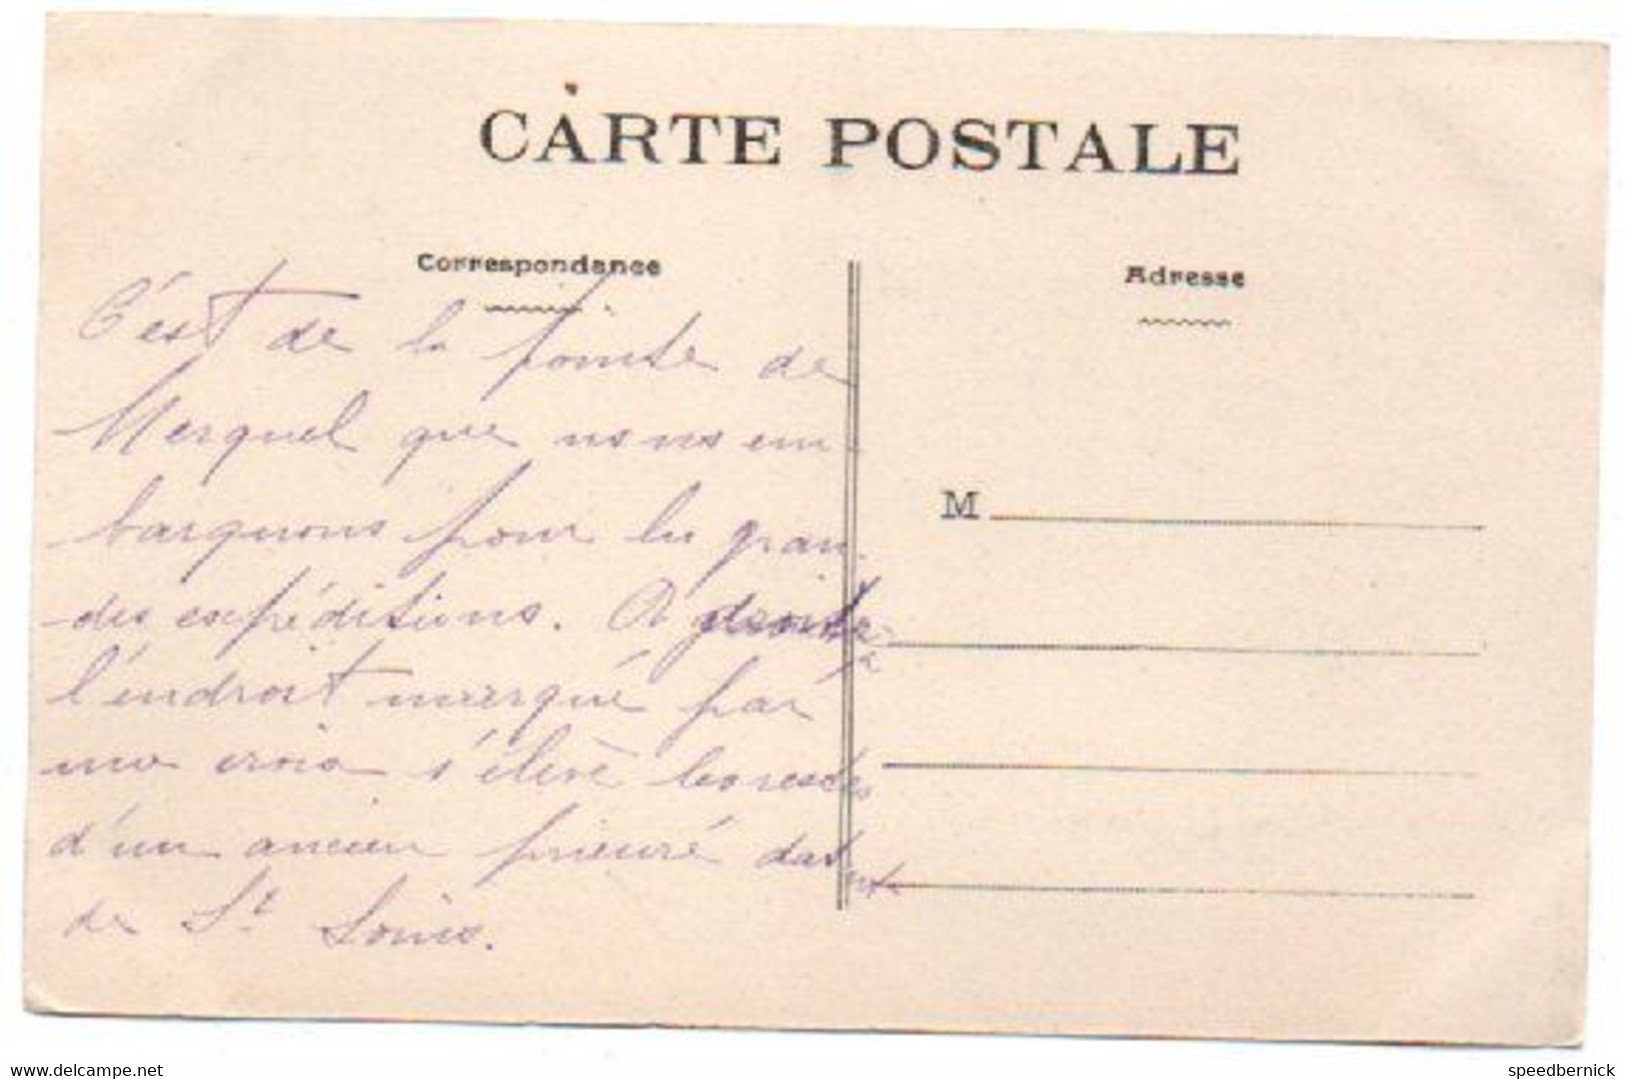 CARTE POSTALE
Correspondance
Adresse
C'est de la pointe de
Merquel que nous em
barquons pour les gran
des expéditions. A droite
à
l'endroit marqué par
une croix s'élève les restes
d'un ancien prieuré datant
de St Louis.
M
www.delcampe.net
speedbernick